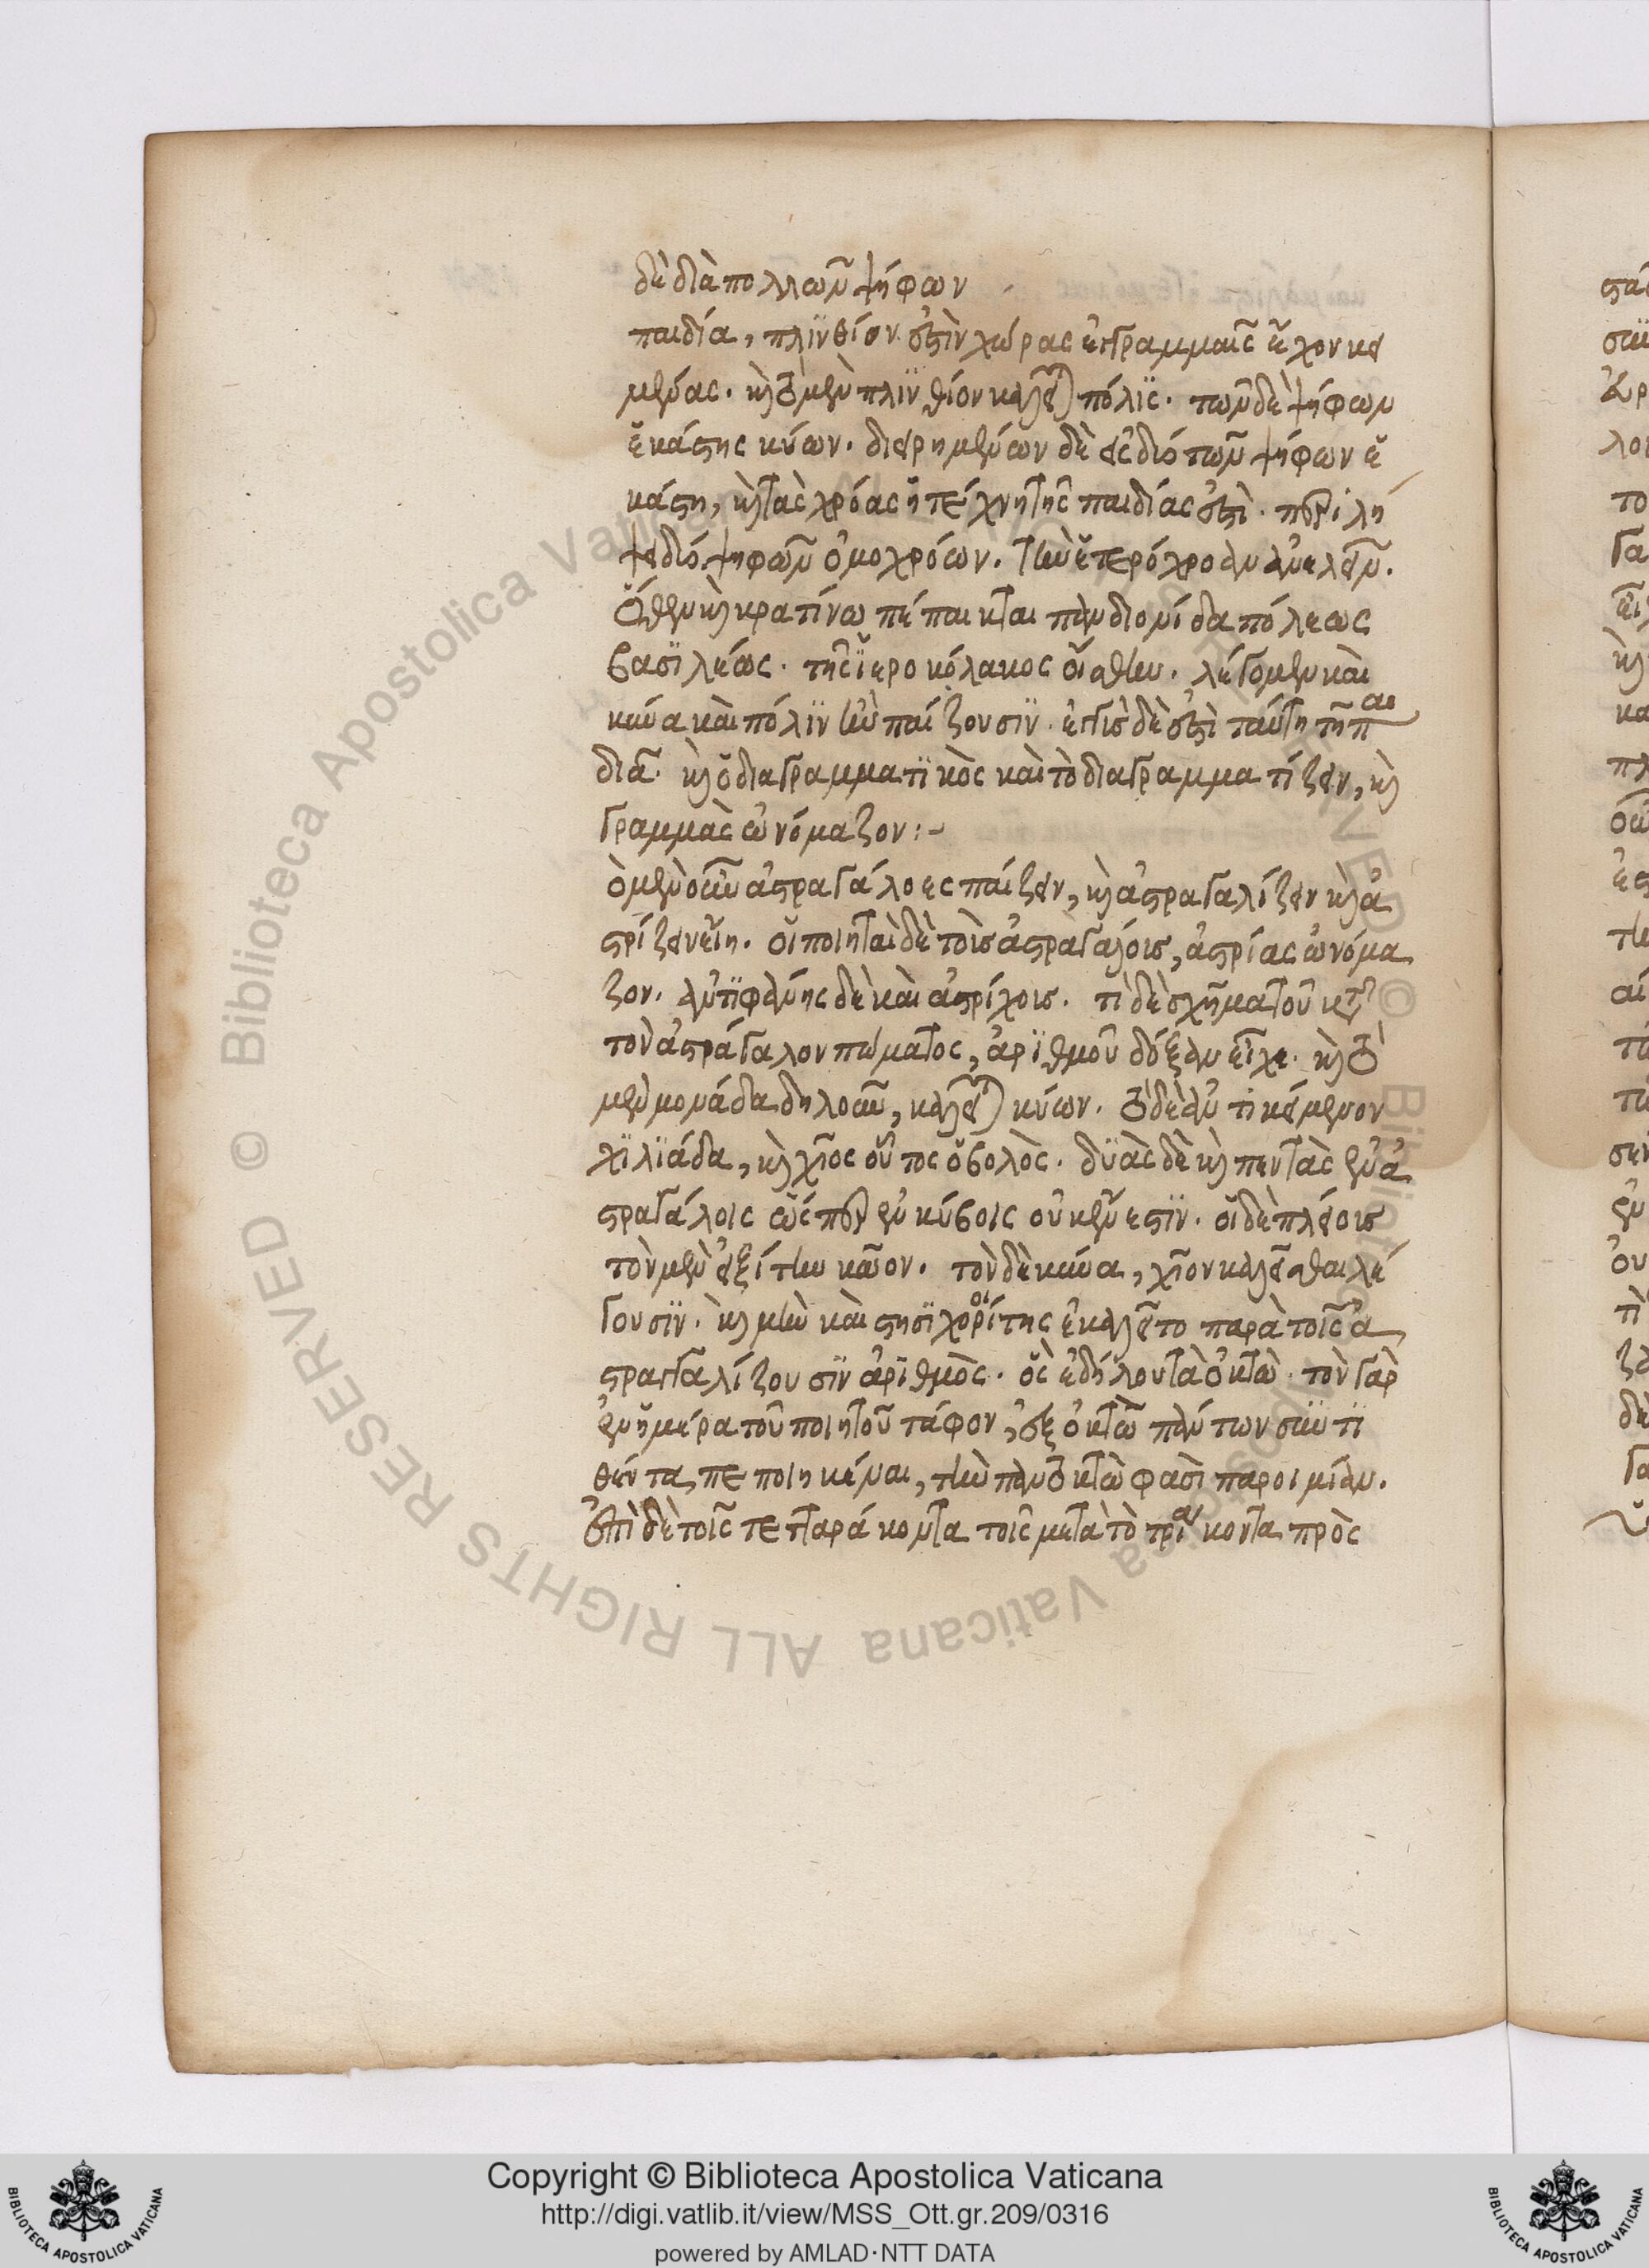 δὲ διὰ πολλῶν ψήφων
παιδία, πλϊνθίον ἐστὶν χώρας ἐν γραμμαῖς ἔχον κει
μένας. καὶ τὸ μὲν πλϊνθίον καλεῖται πόλϊς. τῶν δὲ ψήφων
ἑκάστης κύων. διειρημένων δὲ εἰς δύο τῶν ψήφων ἑ
κάστη, καὶ τὰς χρόας ἡ τέχνη τῆς παιδίας ἐστὶ. περιλή
ψει δύο ψηφῶν ὁμοχρόων. τὴν ἑτερόχροαν ἀνελεῖν.
ὅθεν καὶ κρατίνω πέπαικται πανδιονίδα πόλεως
βασϊλέως. τῆς ἱεροκόλακος οἶσθην. λέγομεν καὶ
κύνα καὶ πόλϊν ἣν παίζουσϊν. ἐγγὺς δὲ ἐστὶ ταύτη τῆ παι
διᾶ. καὶ ὁ διαγραμματϊκὸς καὶ τὸ διαγραμματίζειν, καὶ
γραμμὰς ὠνόμαζον:-
ὁ μὲν οὖν ἀστραγάλοις παίζειν, καὶ ἀστραγαλίζειν καὶ ἀ
στρίζειν εἴη. οἱ ποιηταὶ δὲ τοῖς ἀστραγάλοις, ἀστρίας ὠνόμα
ζον. ἀντϊφάνης δὲ καὶ ἀστρίχοις. τὶ δὲ σχῆμα τοῦ κατὰ
τὸν ἀστράγαλον πώματος, ἀρϊθμοῦ δόξαν εἶχε. καὶ τὸ
μὲν μονάδα δηλοῦν, καλεῖται κύων. τὸ δὲ ἀντικείμενον
χϊλϊάδα, καὶ χῖος οὗτος ὁ βολὸς. δϋὰς δὲ καὶ πεντὰς ἐν ἀ
στραγάλοις ὥσπερ ἐν κύβοις οὐκ ἔνεστϊν. οἱ δὲ πλείοις
τὸν μὲν ἑξίτην κῶον. τὸν δὲ κύνα, χῖον καλεῖσθαι λέ
γουσϊν. καὶ μὴν καὶ στησϊχοροίτης ἐκαλεῖτο παρὰ τοῖς ἀ
στραγαλίζουσϊν ἀρϊθμὸς. ὃς ἐδήλου τὰ ὀκτὼ. τὸν γὰρ
ἐν ἡμέρα τοῦ ποιητοῦ τάφον, ἐξ ὀκτὼ πάντων συντϊ
θέντα, πεποιηκέναι, τὴν πάντ' ὀκτὼ φασὶ παροιμίαν.
ἐπὶ δὲ τοῖς τετταράκοντα τοῖς μετὰ τὸ τριάκοντα πρὸς
Copyright © Biblioteca Apostolica Vaticana
http://digi.vatlib.it/view/MSS_Ott.gr.209/0316
powered by AMLAD·NTT DATA